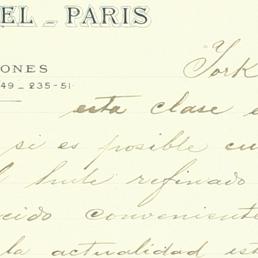 EL – PARIS
ONES
York
49–235-51
esta clase e
si es posible cu
l hule refinado
cido conveniente
la actualidad est